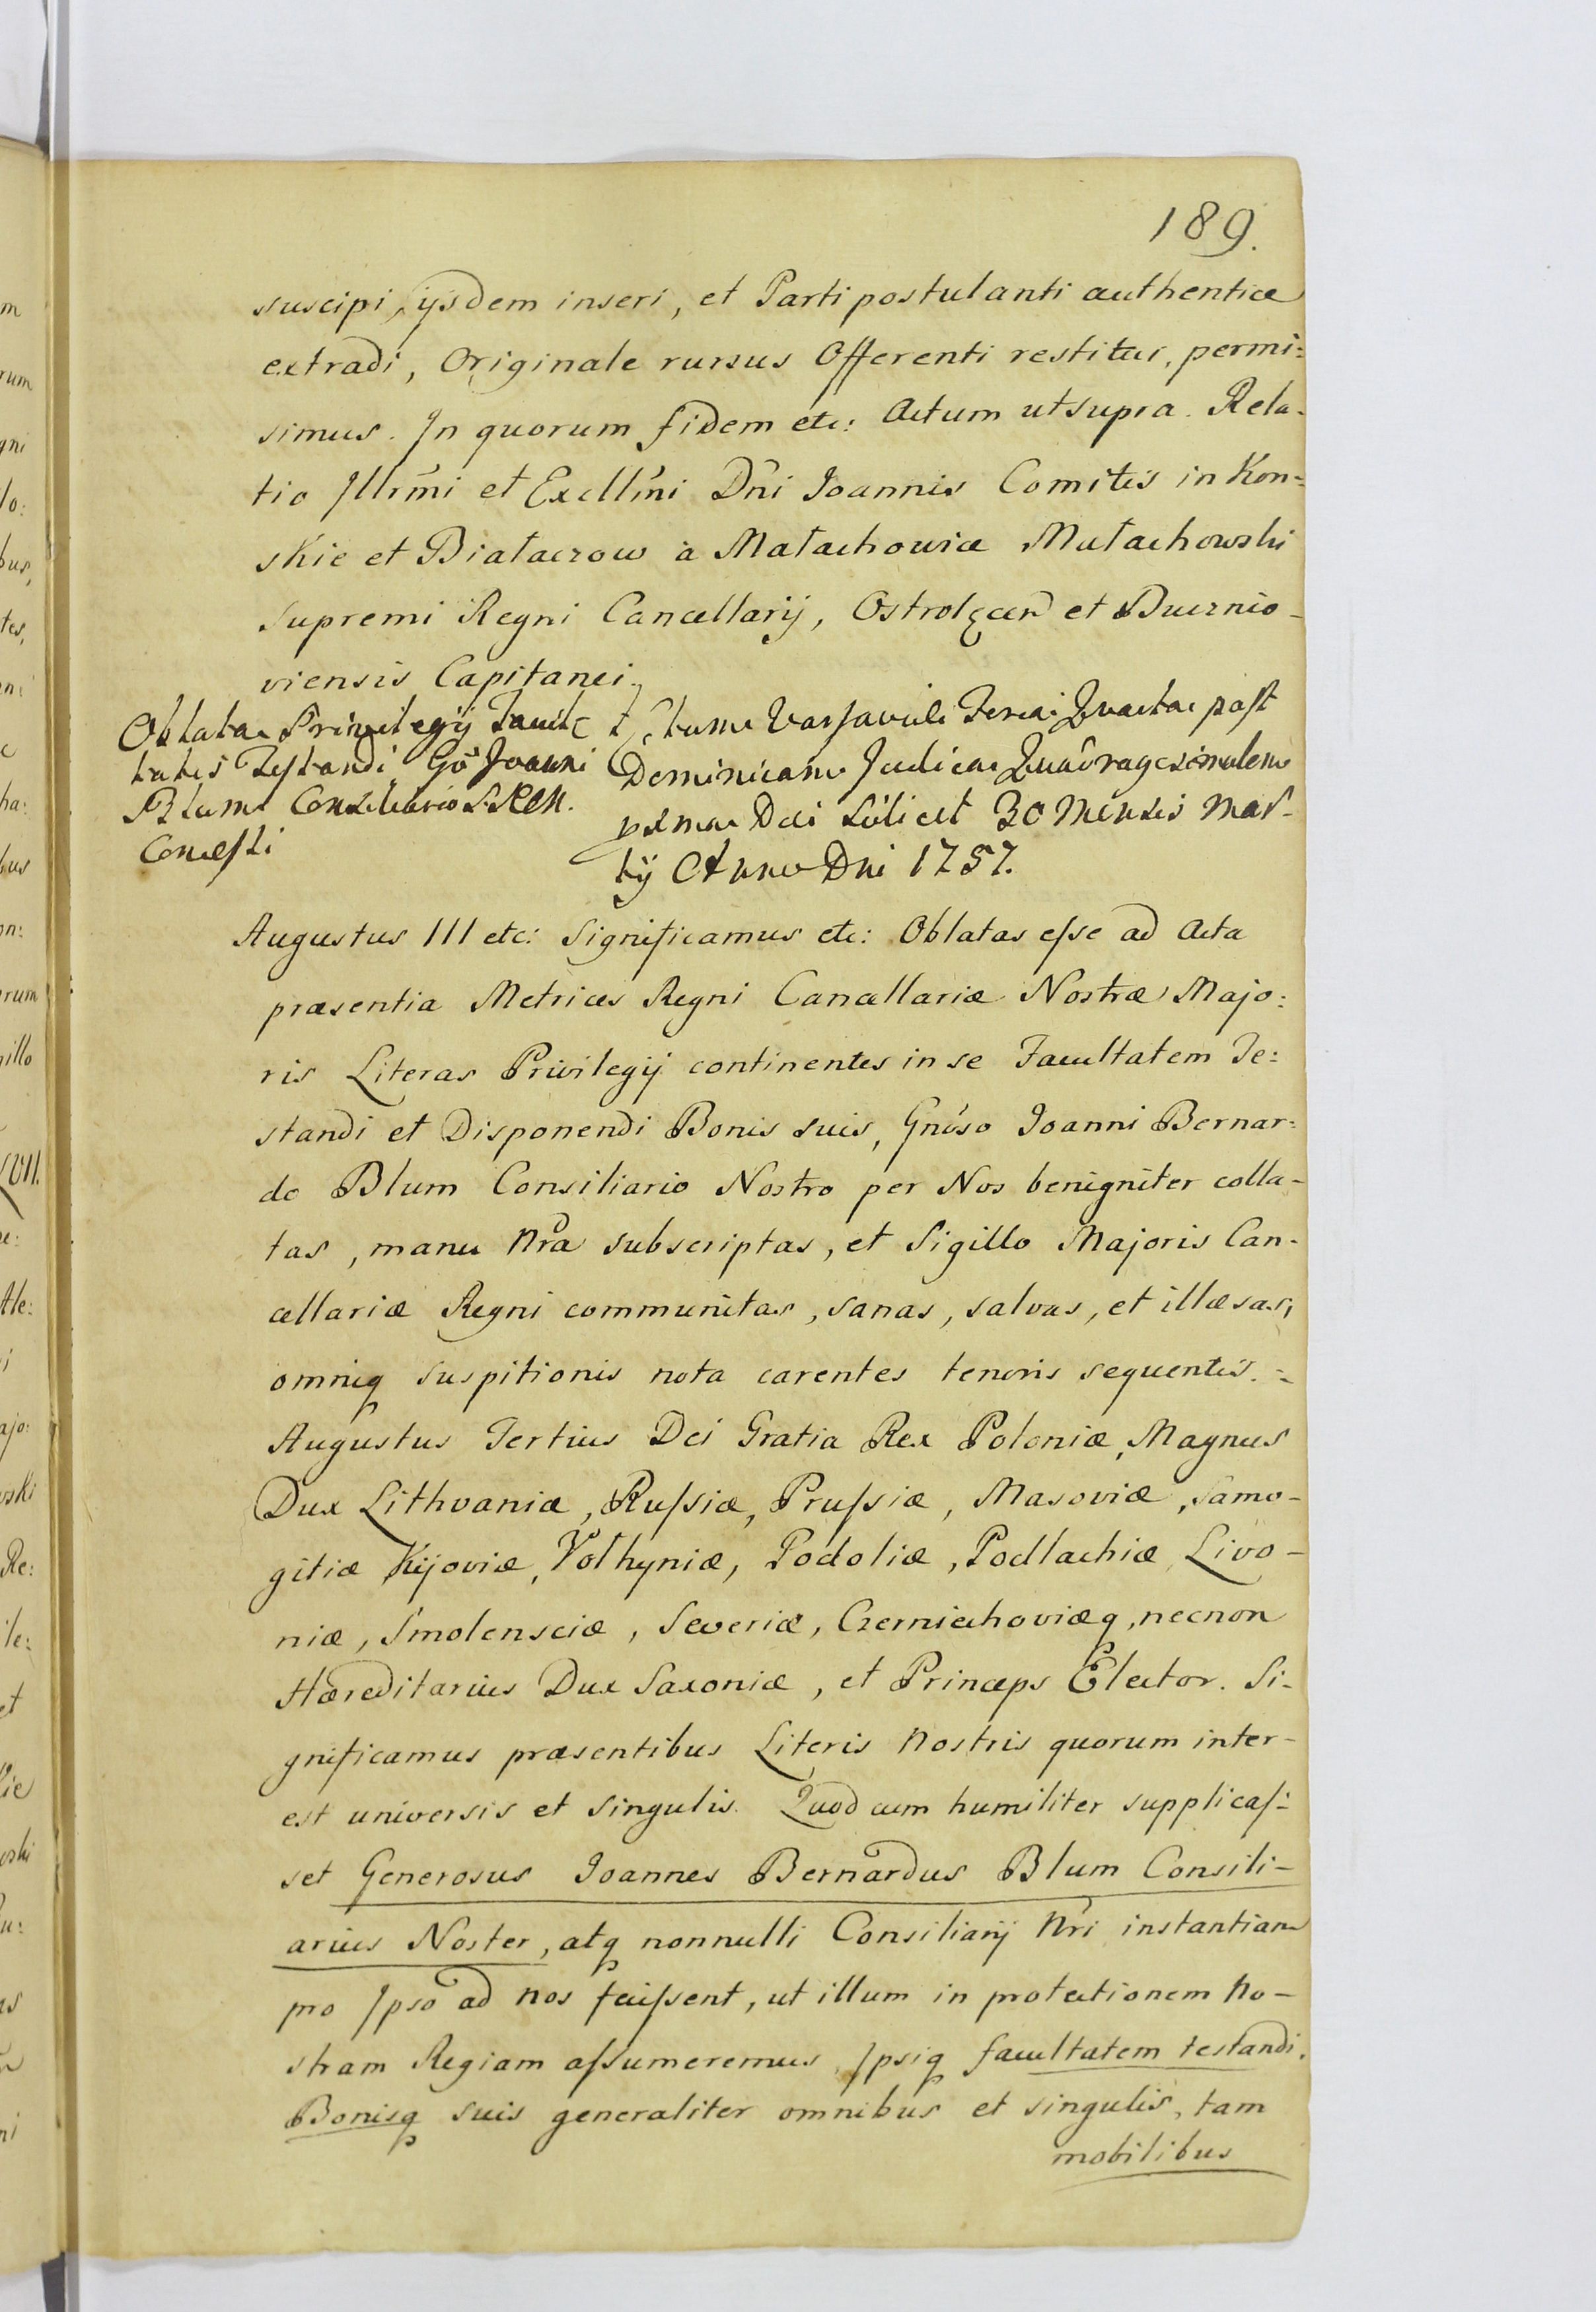 189.
suscipi, ijsdem inseri, et Parti postulanti authentice
extradi, Originale rursus Offerenti restitui, permi:
simus. In quorum fidem etc: Actum ut supra. Rela-
tio Illrmi et Excllmi Dni Joannis Comitis in Kon=
skie et Białaczow à Małachowice Małachowski
Supremi Regni Cancellarij, Ostrolęcen et
viensis Capitanei.
Oblata Privilegij Facul-
tatis Testandi Gso Joanni
Blum Consiliario S. R. M.
Concessi
Actum Varsaviae Feria Quarta post
Dominicam Judica Quadragesimalem
pxma Die Scilicet 30 Mensis Mar-
tij Anno Dni 1757.
Augustus III etc: Significamus etc: Oblatas esse ad Acta
præsentia Metrices Regni Cancellariæ Nostræ Majo:
ris Literas Privilegij continentes in se Facultatem Te:
standi et Disponendi Bonis suis, Gnoso Joanni Bernar:
do Blum Consiliario Nostro per Nos benigniter colla-
tas, manu Nra subscriptas, et Sigillo Majoris Can-
cellariæ Regni communitas, sanas, salvas, et illæsas,
omniq suspitionis nota carentes tenoris sequentis. =
Augustus Tertius Dei Gratia Rex Poloniæ, Magnus
Dux Lithvaniæ, Russiæ, Prussiæ, Masoviæ, Samo-
gitiæ Kijoviæ, Volhyniæ, Podoliæ, Podlachiæ Livo-
niæ, Smolensciæ, Severiæ, Czerniechoviæq, necnon
Hæreditarius Dux Saxoniæ, et Princeps Elector. Si-
gnificamus præsentibus Literis Nostris quorum inter-
est universis et singulis. Quod cum humiliter supplicas:
set Generosus Joannes Bernardus Blum Consili-
arius Noster, atq nonnulli Consiliarij Nri instantiam
pro Ipso ad nos fecissent, ut illum in protectionem No-
stram Regiam assumeremus, Ipsiq facultatem testandi,
Bonisq suis generaliter omnibus et singulis, tam
mobilibus